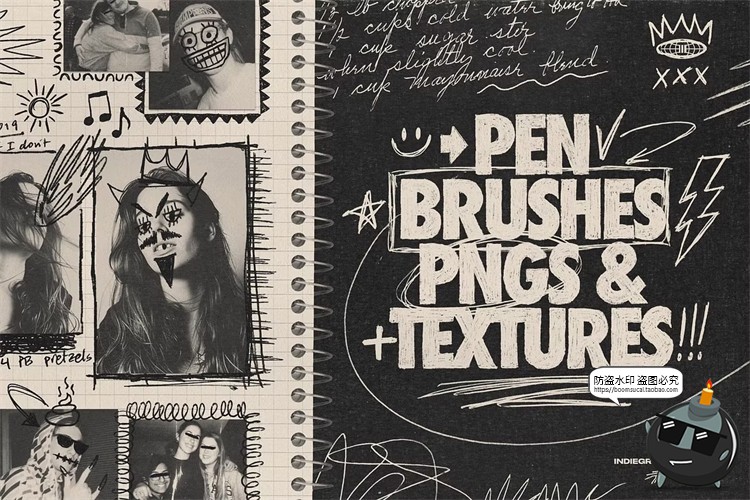 019
- I don't
4 PB pretzels
1/2 cups cold water bring to
cup sugar stir
when slightly cool.
1 cup mayonnaise blend.
XXX
PEN
BRUSHES
PNGS &
+TEXTURES!!!
防盗水印 盗图必究
https://boomsucai.taobao.com
INDIEGR